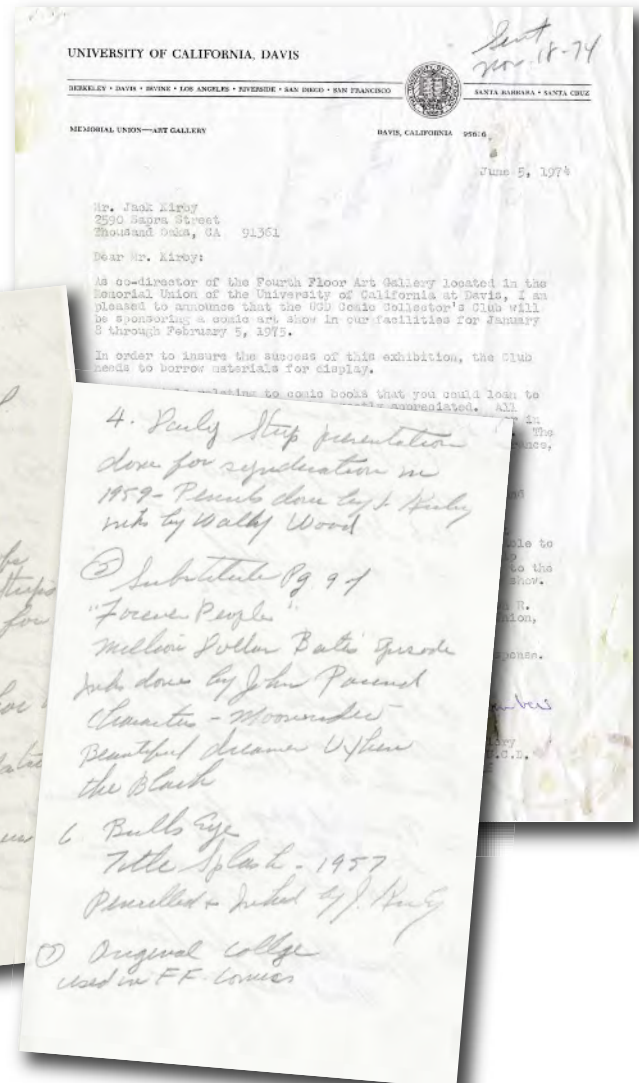 Sent
Nov. 18-74
UNIVERSITY OF CALIFORNIA, DAVIS
BERKELEY • DAVIS • IRVINE • LOS ANGELES • RIVERSIDE • SAN DIEGO • SAN FRANCISCO
SANTA BARBARA • SANTA CRUZ
MEMORIAL UNION—ART GALLERY
DAVIS, CALIFORNIA 95616
June 5, 1974
Mr. Jack Kirby
2590 Sapra Street
Thousand Oaks, CA 91361
Dear Mr. Kirby:
As co-director of the Fourth Floor Art Gallery located in the
Memorial Union of the University of California at Davis, I am
pleased to announce that the UCD Comic Collector's Club will
be sponsoring a comic art show in our facilities for January
8 through February 5, 1975.
In order to insure the success of this exhibition, the Club
needs to borrow materials for display.
relating to comic books that you could loan to
appreciated. All
in
The
to
to the
show.
R.
4. Daily Strip presentation
done for syndication in
1959 - Pencils done by J. Kirby
inks by Wally Wood
(5) Substitute Pg. 9 of
"Forever People"
Million Dollar Bates Episode
Inks done by John
Characters - Moonrider
Beautiful dreamer
the Black
6 Bulls Eye
Title Splash - 1957
Pencilled & Inked by J. Kirby
(7) Original collge
used in F.F. Comics
for